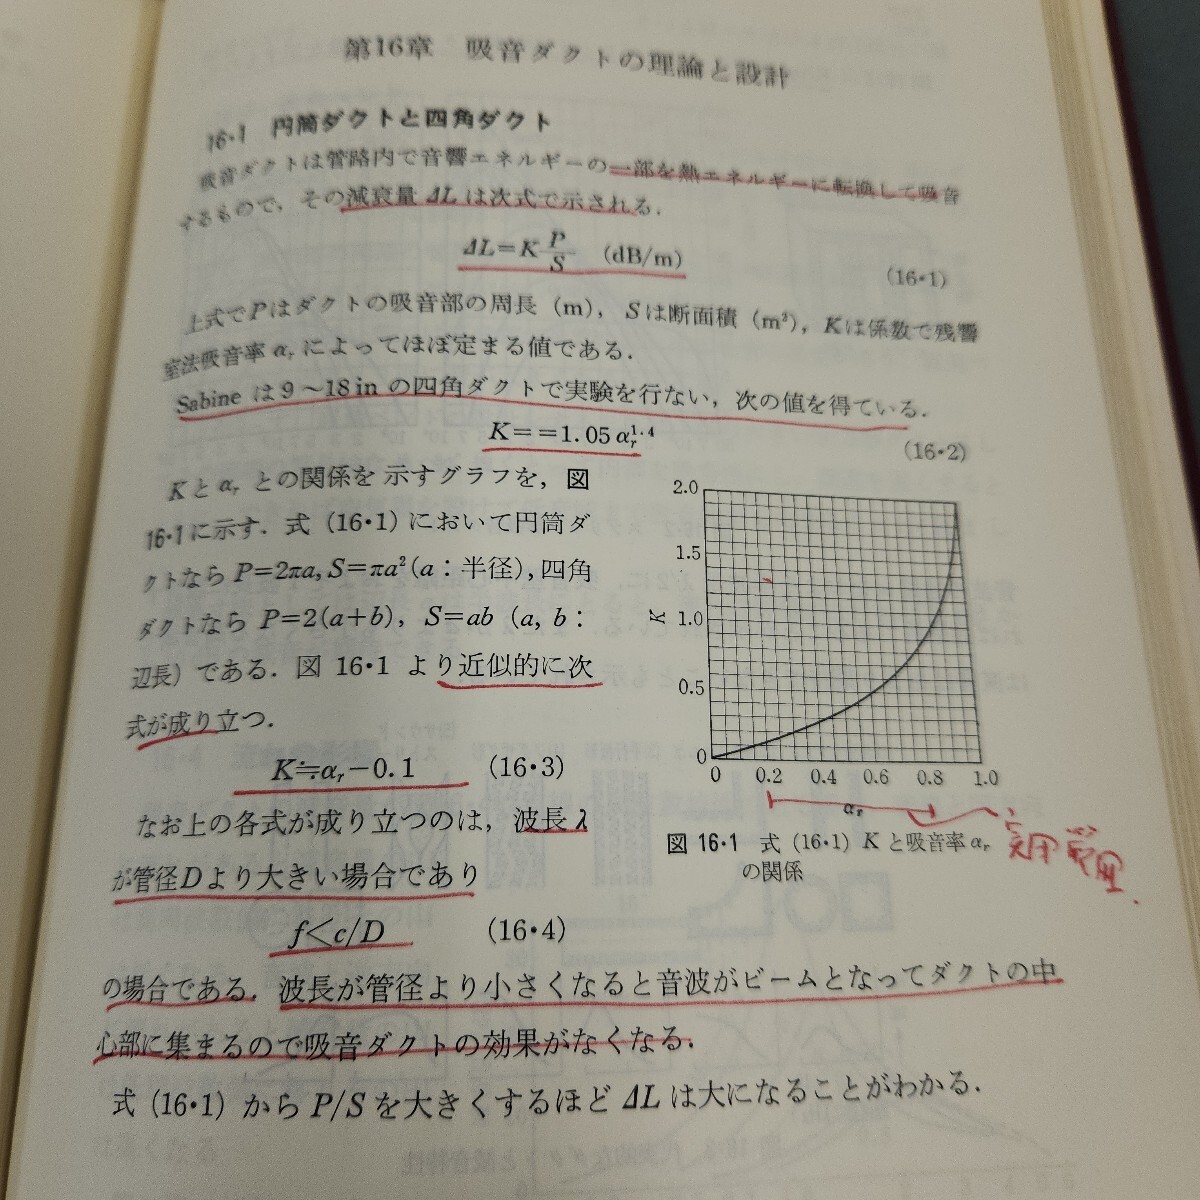 第16章 吸音ダクトの理論と設計
16・1 円筒ダクトと四角ダクト
吸音ダクトは管路内で音響エネルギーの一部を熱エネルギーに転換して吸音
するもので，その減衰量 ΔL は次式で示される．
ΔL=K P/S (dB/m) (16・1)
上式でPはダクトの吸音部の周長 (m)，Sは断面積 (m²)，Kは係数で残響
室法吸音率 αr によってほぼ定まる値である．
Sabine は9～18in の四角ダクトで実験を行ない，次の値を得ている．
K==1.05 αr^1・4 (16・2)
Kとαr との関係を示すグラフを，図
16・1に示す．式 (16・1) において円筒ダ
クトなら P=2πa, S=πa² (a：半径)，四角
ダクトなら P=2(a+b)，S=ab (a, b：
辺長) である．図 16・1 より近似的に次
式が成り立つ．
K≒αr−0.1 (16・3)
なお上の各式が成り立つのは，波長λ
が管径Dより大きい場合であり
f<c/D (16・4)
2.0
1.5
K 1.0
0.5
0
0 0.2 0.4 0.6 0.8 1.0
αr
実用範囲.
図 16・1 式 (16・1) K と吸音率 αr
の関係
の場合である．波長が管径より小さくなると音波がビームとなってダクトの中
心部に集まるので吸音ダクトの効果がなくなる．
式 (16・1) から P/S を大きくするほど ΔL は大になることがわかる．